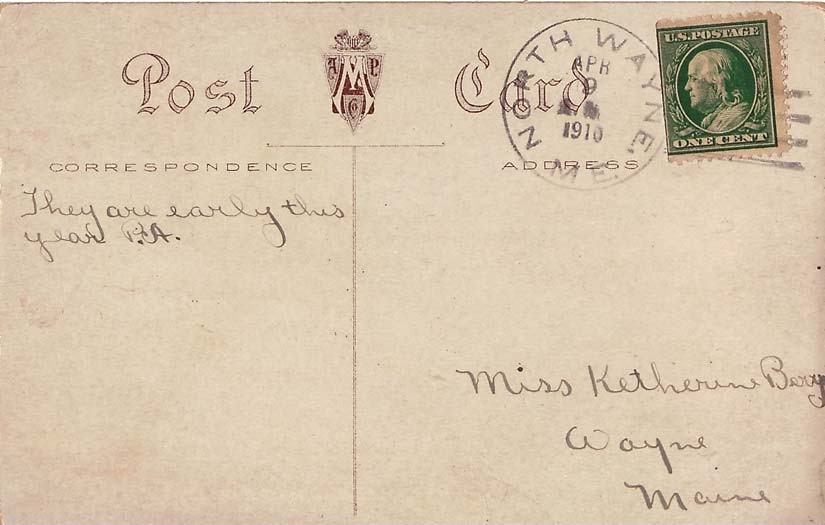 Post Card
A M P
Co
NORTH WAYNE, ME.
APR
9
1910
U.S. POSTAGE
ONE CENT
CORRESPONDENCE
ADDRESS
They are early this
year P.A.
Miss Ketherine Berry
Wayne
Maine